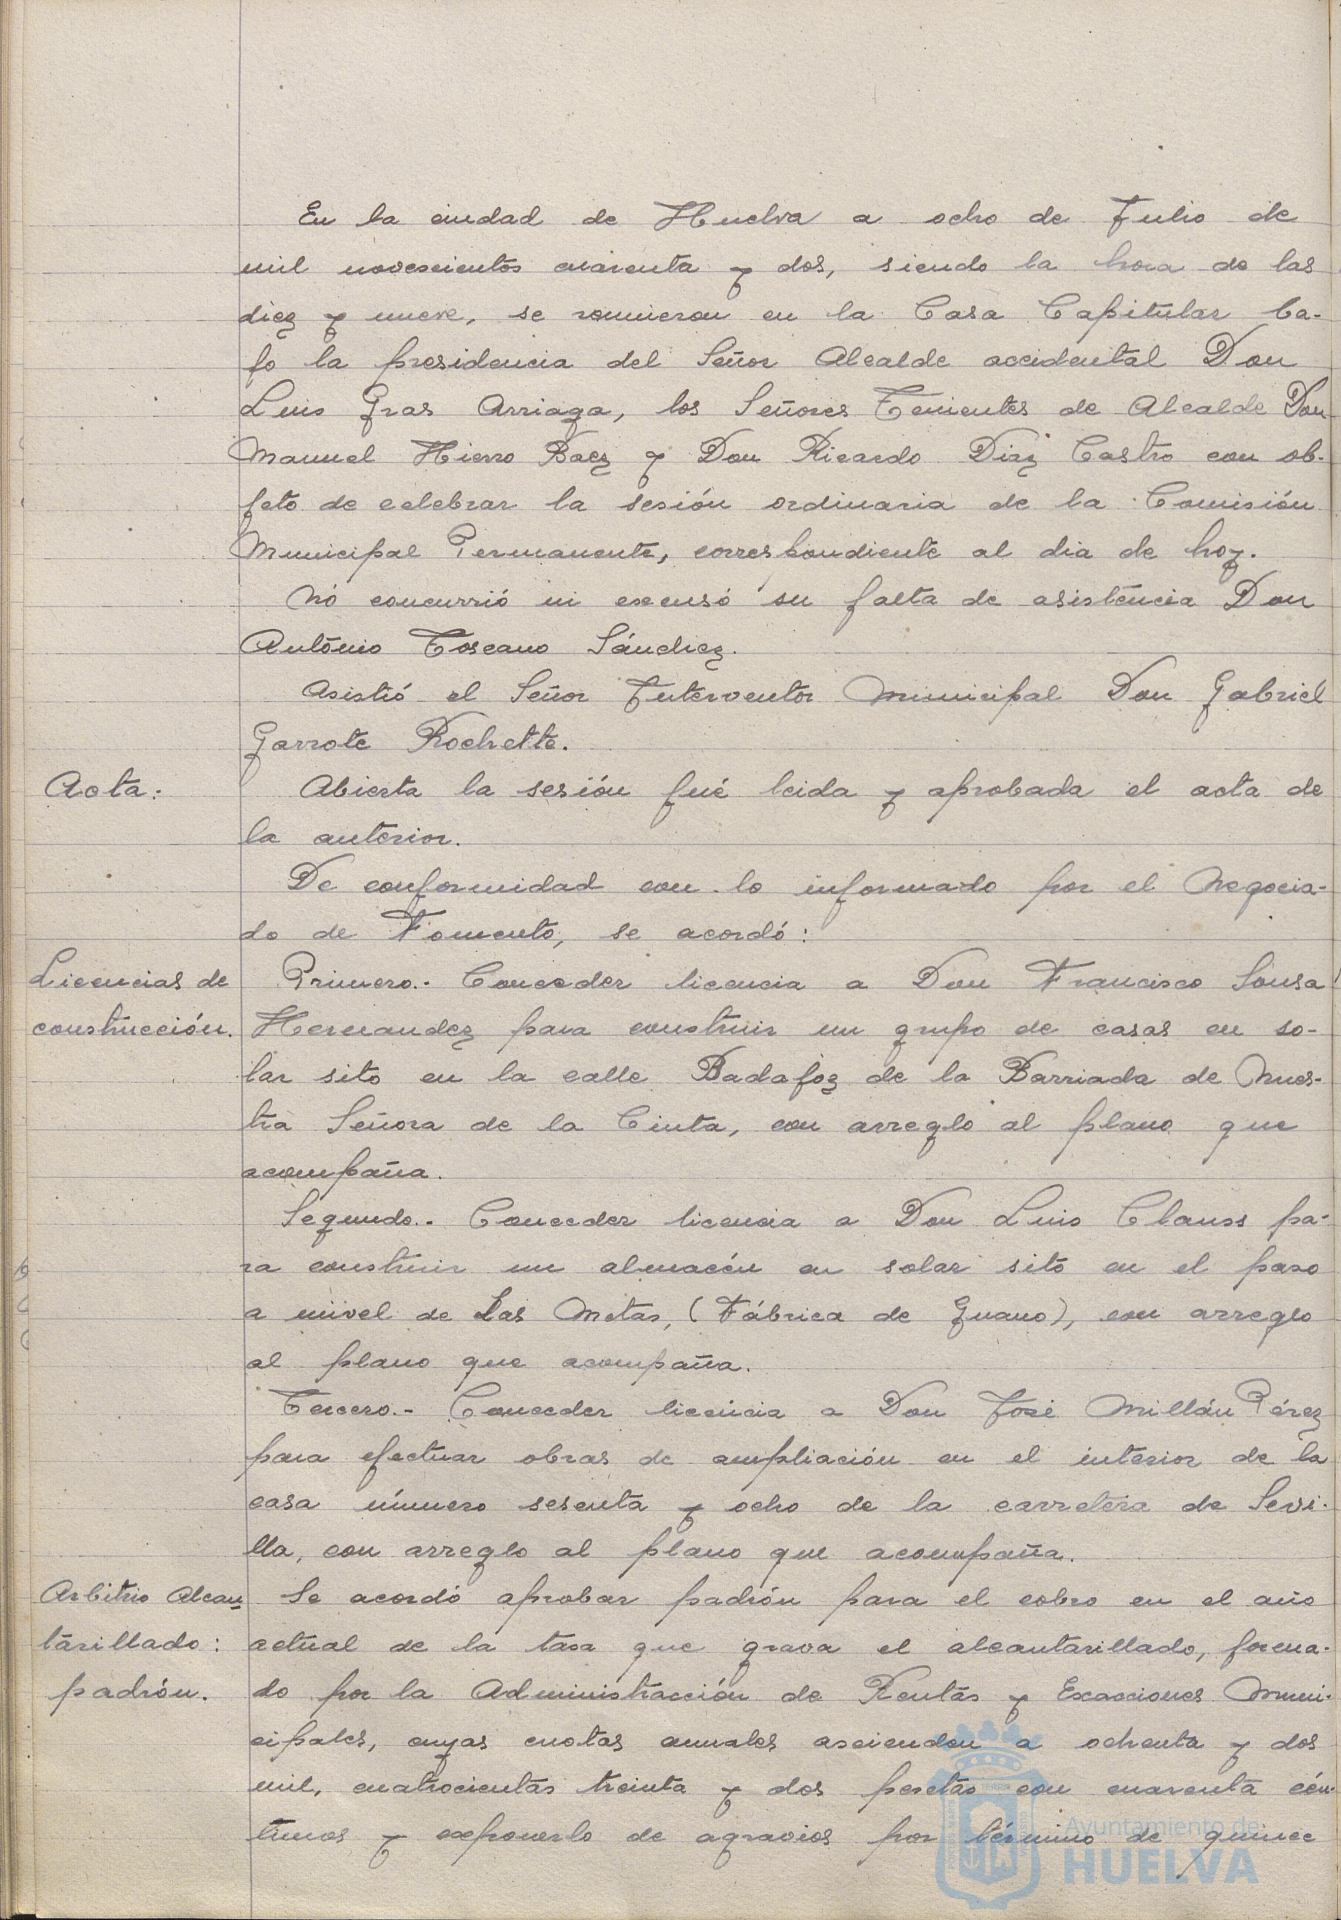 En la ciudad de Huelva a ocho de Julio de
mil novescientos cuarenta y dos, siendo la hora de las
diez y nueve, se reunieron en la Casa Capitular ba-
jo la presidencia del Señor Alcalde accidental Don
Luis Gras Arriaga, los Señores Tenientes de Alcalde Don
Manuel Hierro Baez y Don Ricardo Diaz Castro con ob-
jeto de celebrar la sesión ordinaria de la Comisión
Municipal Permanente, correspondiente al dia de hoy.
No concurrió ni excusó su falta de asistencia Don
Antonio Toscano Sánchez.
Asistió el Señor Interventor Municipal Don Gabriel
Garrote Rochette.
Acta:
Abierta la sesión fué leida y aprobada el acta de
la anterior.
De conformidad con lo informado por el Negocia-
do de Fomento, se acordó:
Licencias de
construcción.
Primero.- Conceder licencia a Don Francisco Sousa
Hernandez para construir un grupo de casas en so-
lar sito en la calle Badajoz de la Barriada de Nues-
tra Señora de la Cinta, con arreglo al plano que
acompaña.
Segundo.- Conceder licencia a Don Luis Clauss pa-
ra construir un almacén en solar sito en el paso
a nivel de Las Metas, (Fábrica de Guano), con arreglo
al plano que acompaña.
Tercero.- Conceder licencia a Don José Millán Pérez
para efectuar obras de ampliación en el interior de la
casa número sesenta y ocho de la carretera de Sevi-
lla, con arreglo al plano que acompaña.
Arbitrio Alcan
tarillado:
padrón.
Se acordó aprobar padrón para el cobro en el año
actual de la tasa que grava el alcantarillado, forma-
do por la Administracción de Rentas y Exacciones Muni-
cipales, cuyas cuotas anuales ascienden a ochenta y dos
mil, cuatrocientas treinta y dos pesetas con cuarenta cén-
timos y exponerlo de agravios por término de quince
Ayuntamiento de
HUELVA